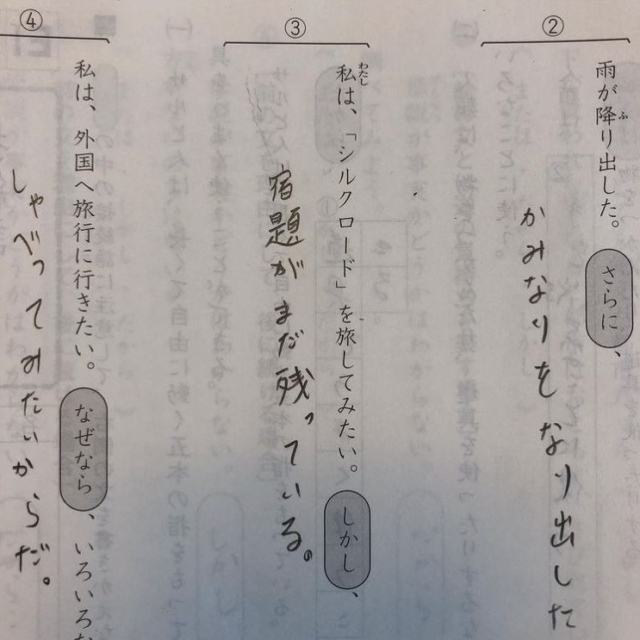 ②
雨が降り出した。さらに、
かみなりをなり出した
③
私は、「シルクロード」を旅してみたい。しかし、
宿題がまだ残っている。
④
私は、外国へ旅行に行きたい。なぜなら、いろいろな
しゃべってみたいからだ。